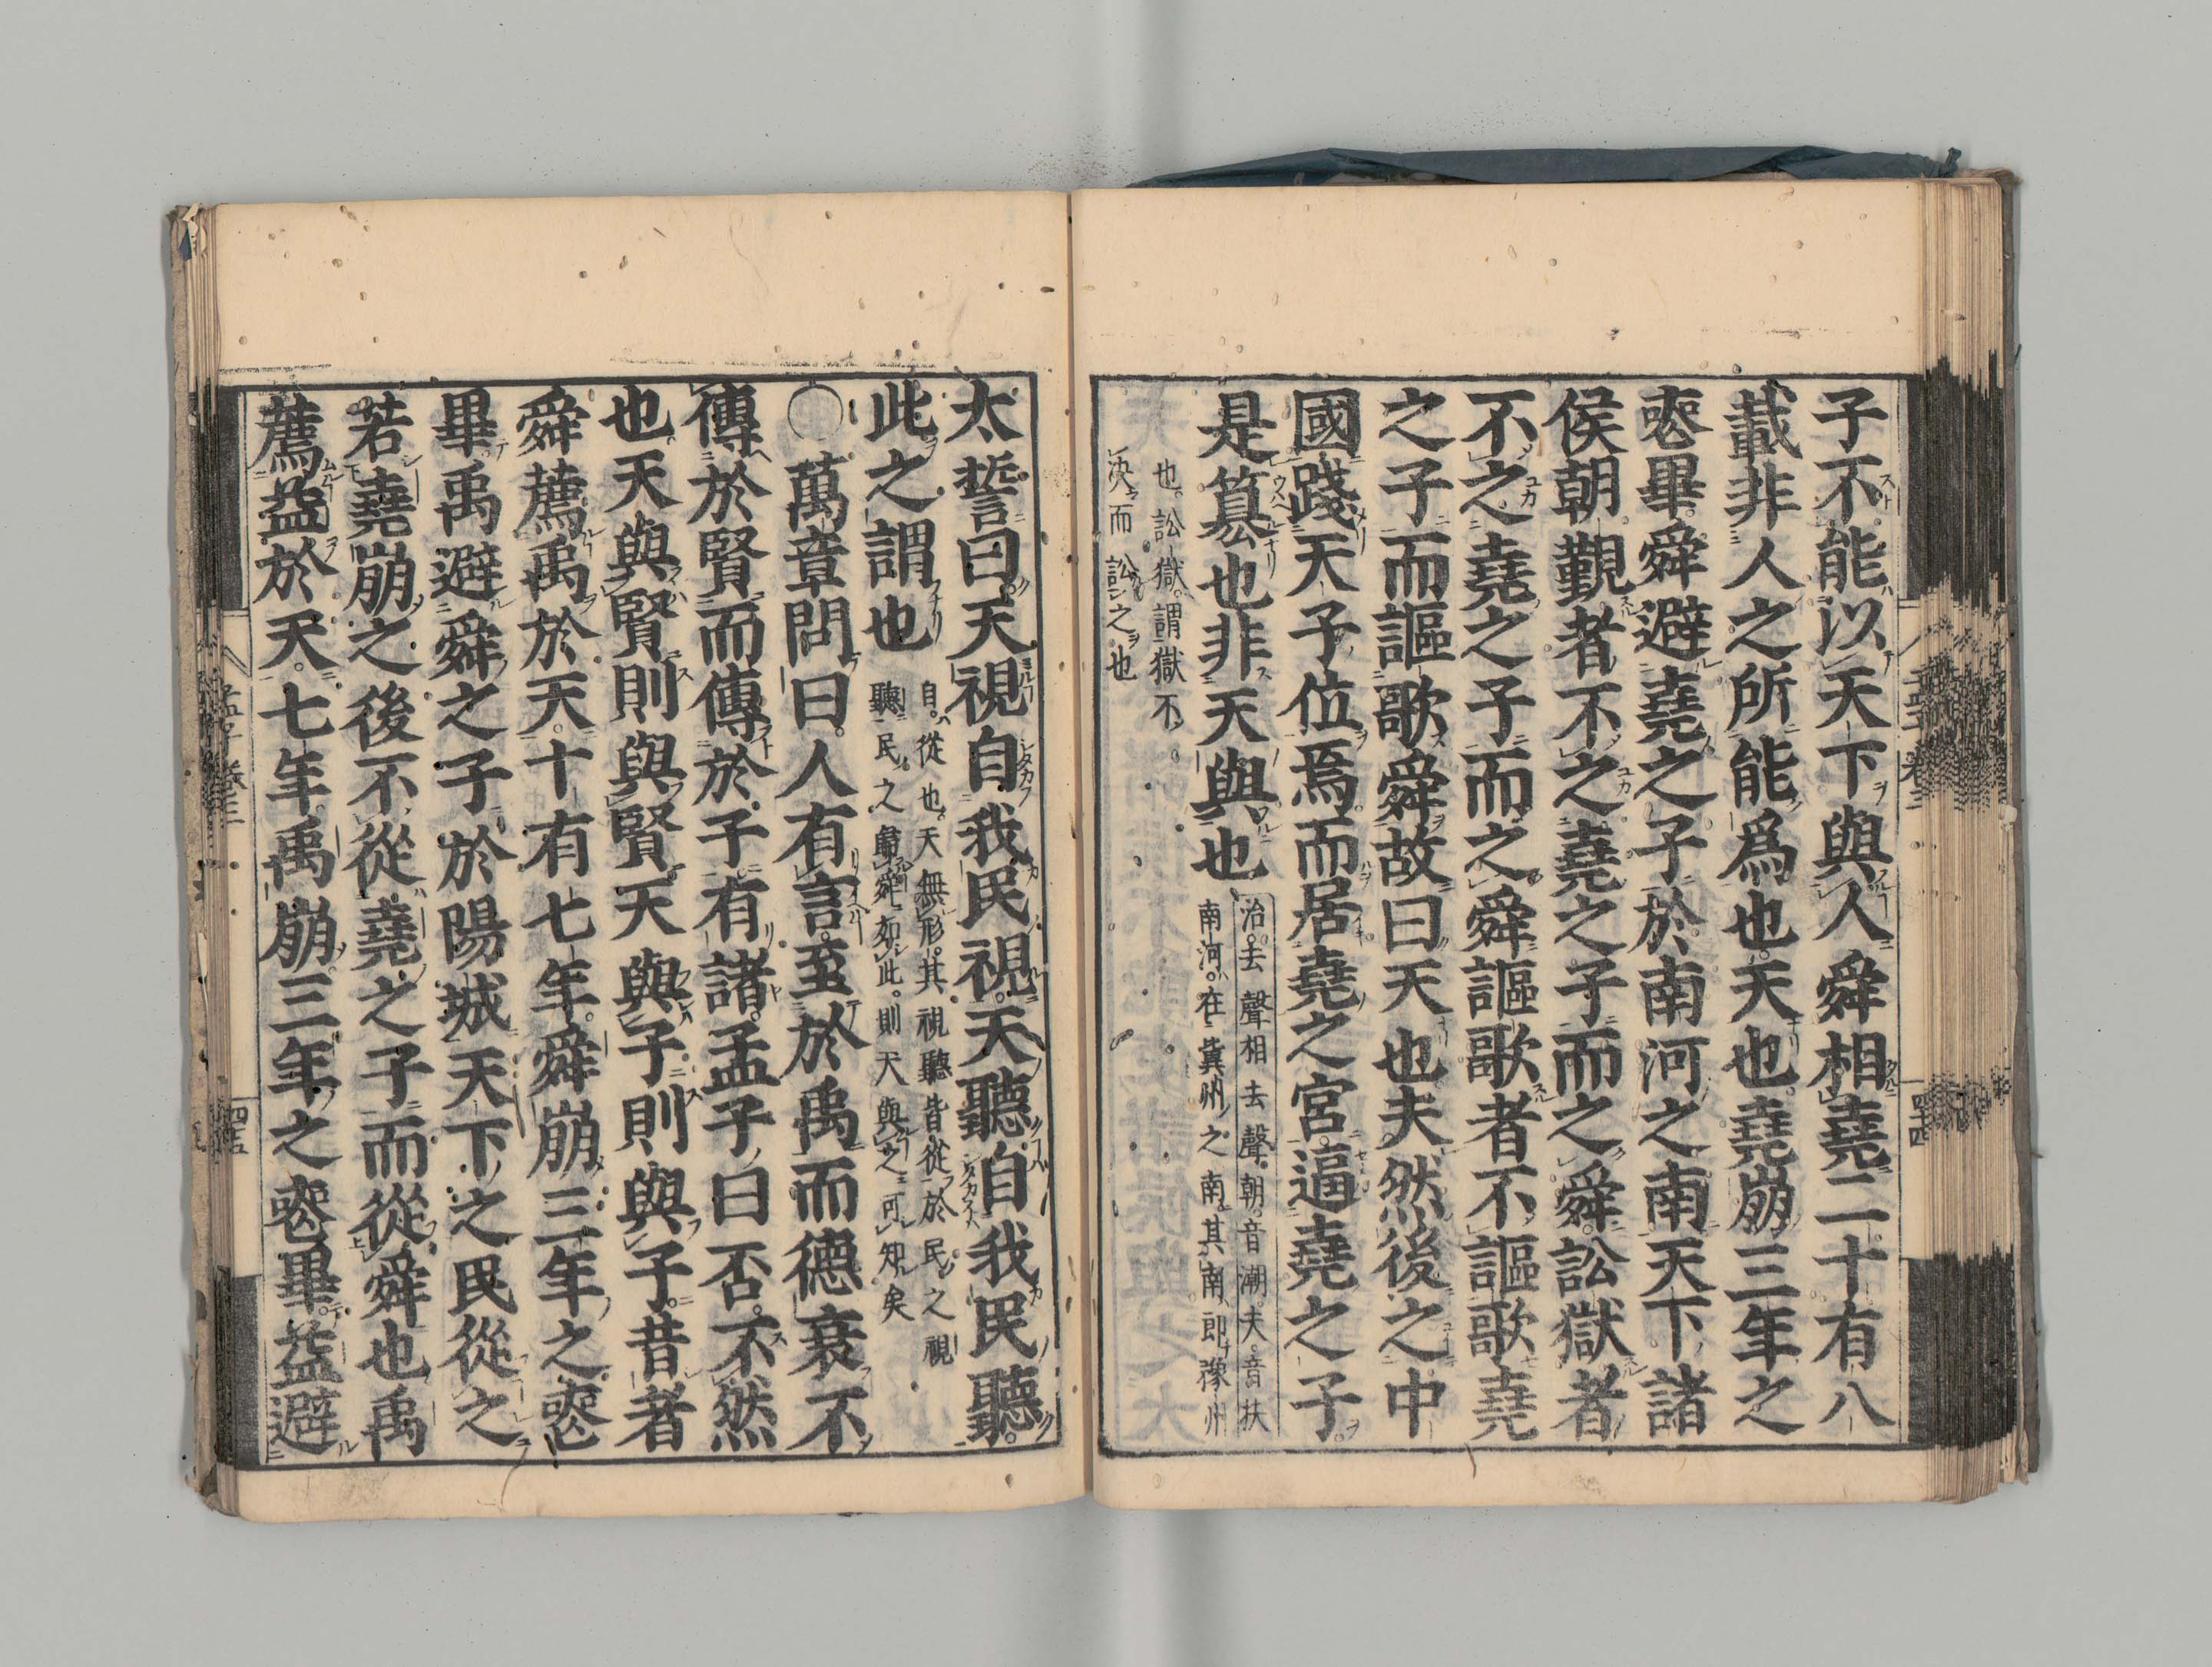 子不能以天下與人舜相堯二十有八
載非人之所能爲也天也堯崩三年之
喪畢舜避堯之子於南河之南天下諸
侯朝覲者不之堯之子而之舜訟獄者
不之堯之子而之舜謳歌者不謳歌堯
之子而謳歌舜故曰天也夫然後之中
國踐天子位焉而居堯之宮逼堯之子
是篡也非天與也
治去聲相去聲朝音潮夫音扶
南河在冀州之南其南即豫州
也訟獄謂獄不
決而訟之也
太誓曰天視自我民視天聽自我民聽
此之謂也
自從也天無形其視聽皆從於民之視
聽民之歸舜如此則天與之可知矣
○萬章問曰人有言至於禹而德衰不
傳於賢而傳於子有諸孟子曰否不然
也天與賢則與賢天與子則與子昔者
舜薦禹於天十有七年舜崩三年之喪
畢禹避舜之子於陽城天下之民從之
若堯崩之後不從堯之子而從舜也禹
薦益於天七年禹崩三年之喪畢益避
孟子卷三
四十四
孟子卷三
四十五